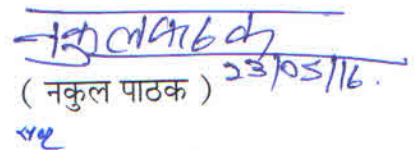 नकुल पाठक
23/05/16.
( नकुल पाठक )